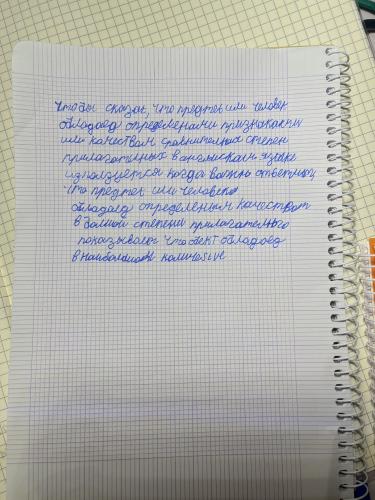 Чтобы сказат, что предмет или человек
обладоед определенами признаками
или качествам сравнителная степен
прилагателных в англискам языке
использется когда важно ответить,
что предмет или человека
обладоед определеным качеством
в болшой степени прилагателного
показываем что обект обладоед
в наиболшом количestve